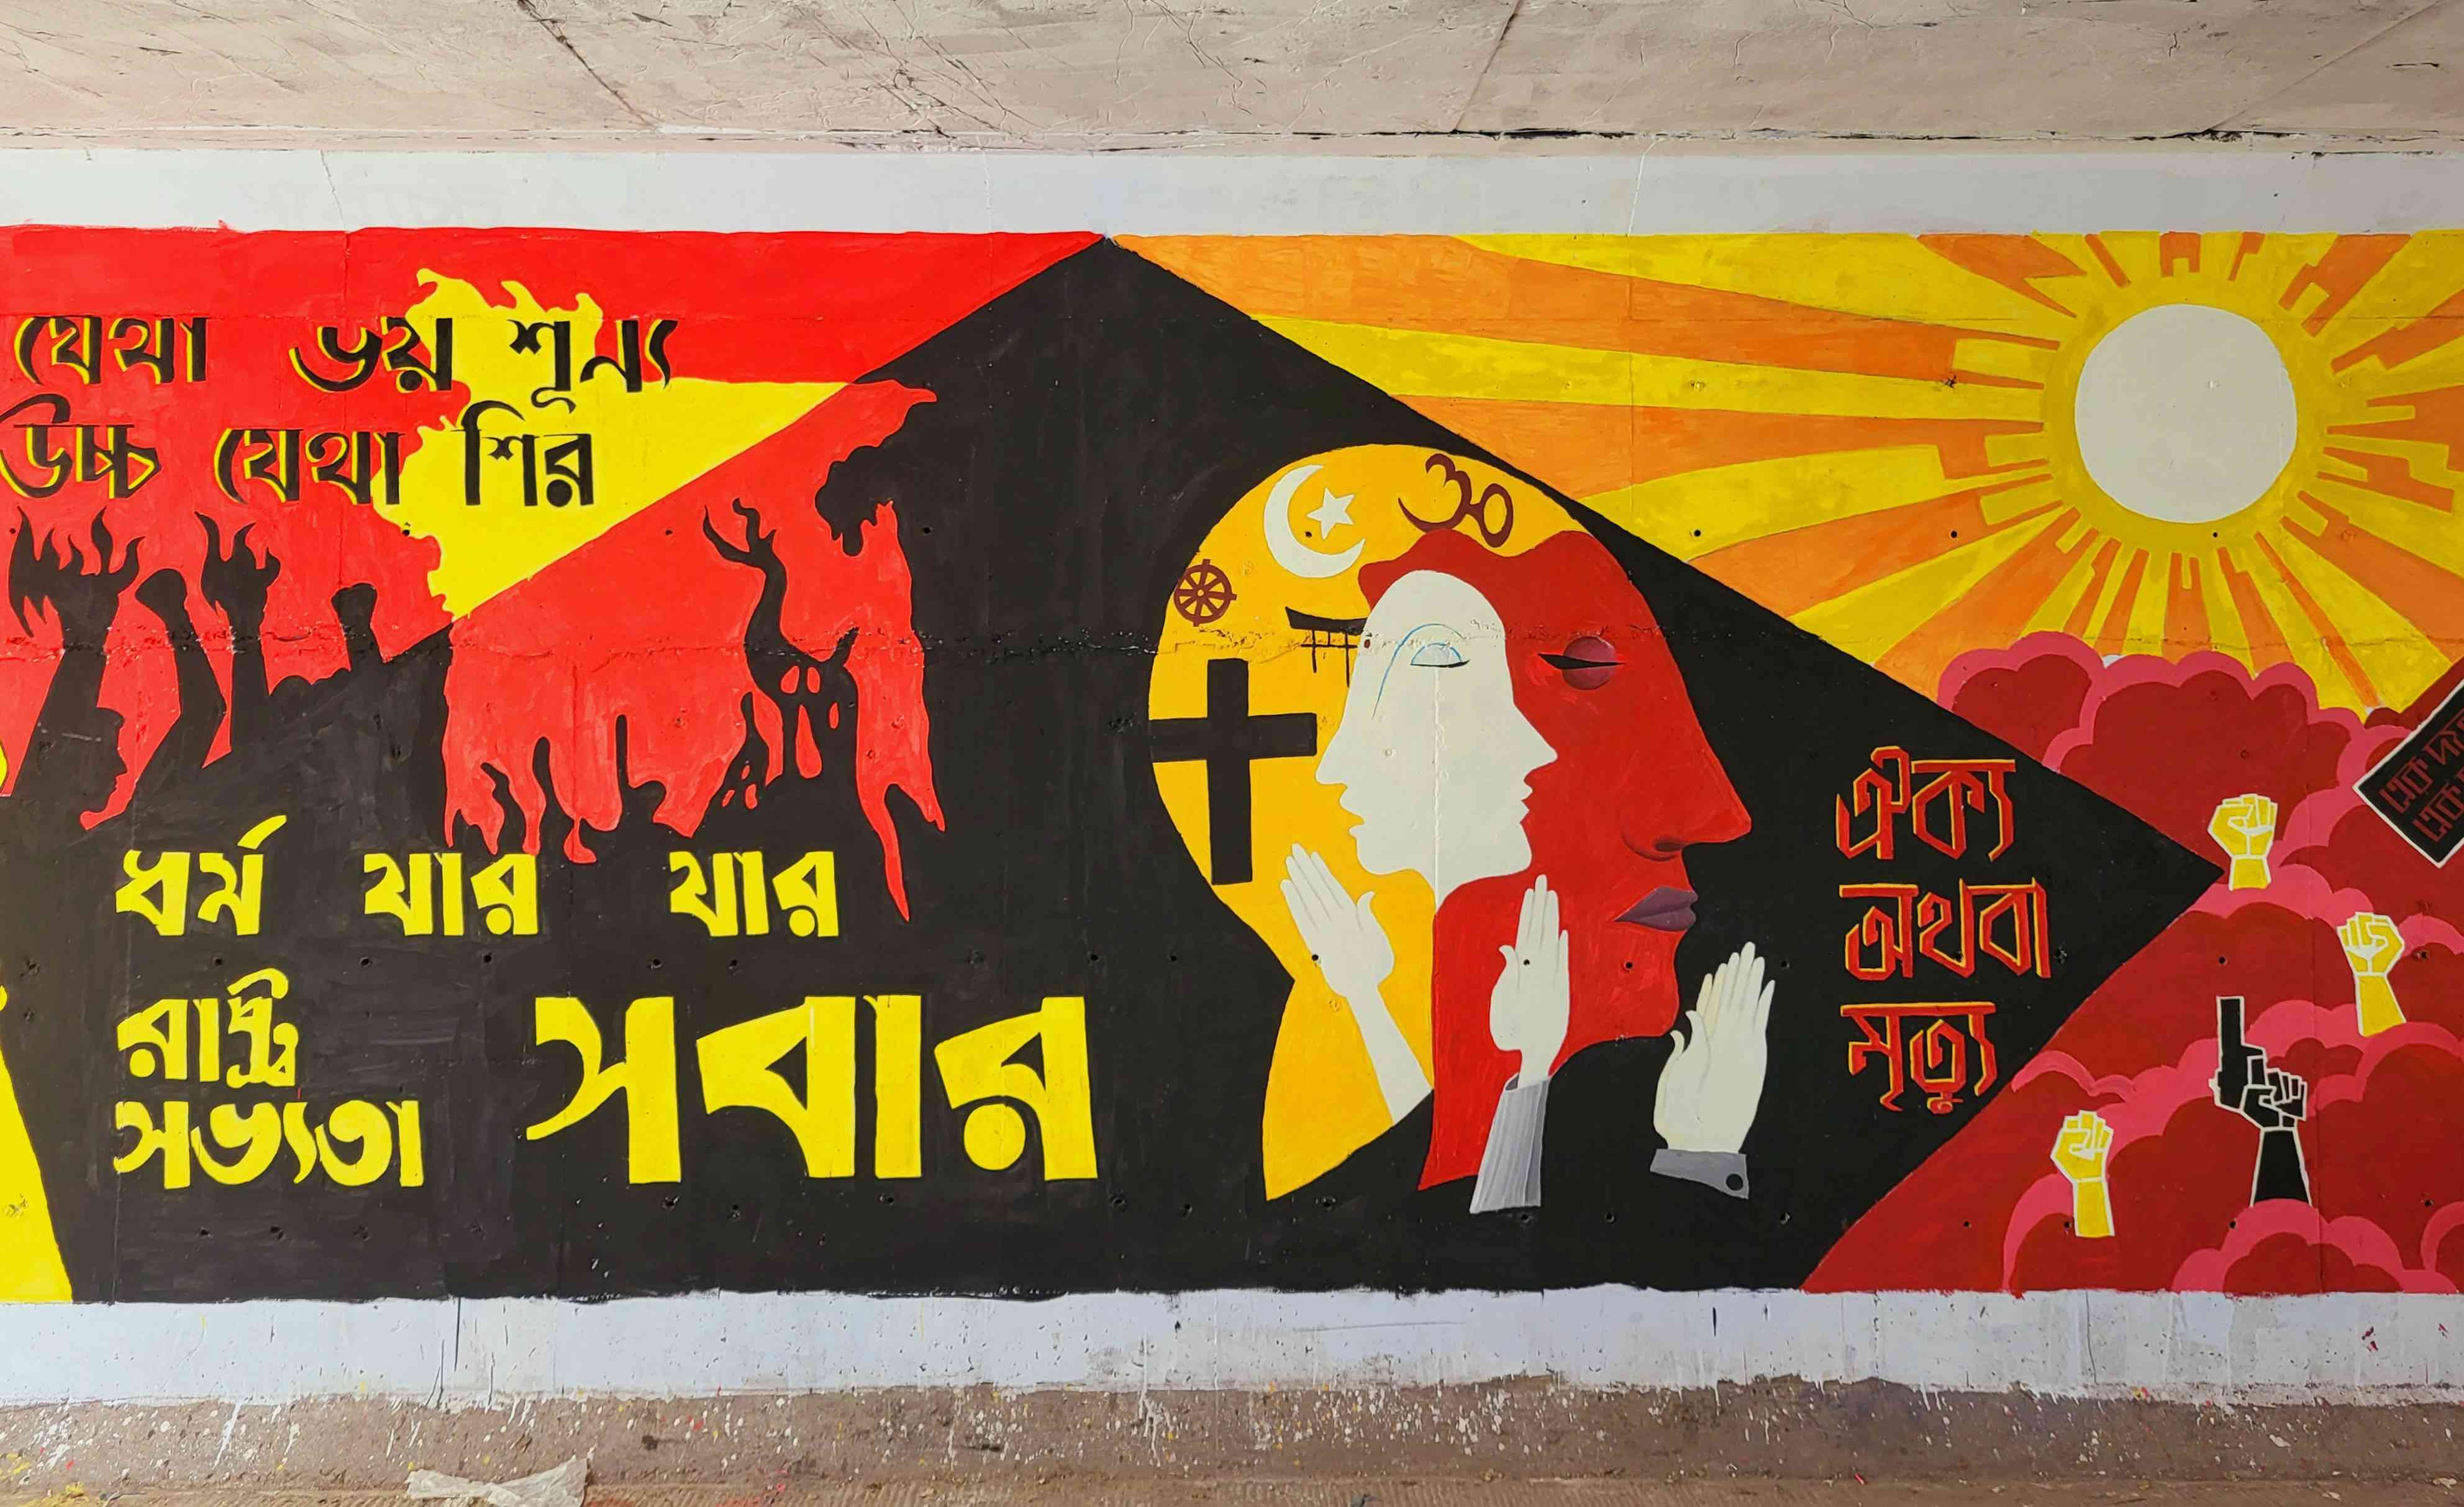 যেথা ভয় শূন্য
উচ্চ যেথা শির
ধর্ম যার যার
রাষ্ট্র
সভ্যতা
সবার
ঐক্য
অথবা
মৃত্যু
ॐ